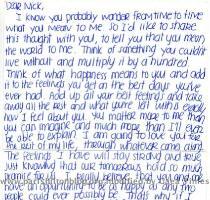 Dear Nick,
I know you probably wonder from time to time
what you mean to me. So I'd like to share
this thought with you, to tell you that you mean
the world to me. Think of something you couldn't
live without and multiply it by a hundred.
Think of what happiness means to you and add
it to the feelings you get on the best days you've
ever had. Add up all your best feelings and take
away all the rest and what you're left with is exactly
how I feel about you. You matter more to me than
you can imagine and much more than I'll ever
be able to explain. I am going to love you for
the rest of my life, through whatever comes along.
The feelings I have will stay steadfast and true
just knowing that our tomorrows hold so much
promise for us. I really believe that you and me
have an opportunity to be as happy as any two
people could ever possibly be. That's why if I